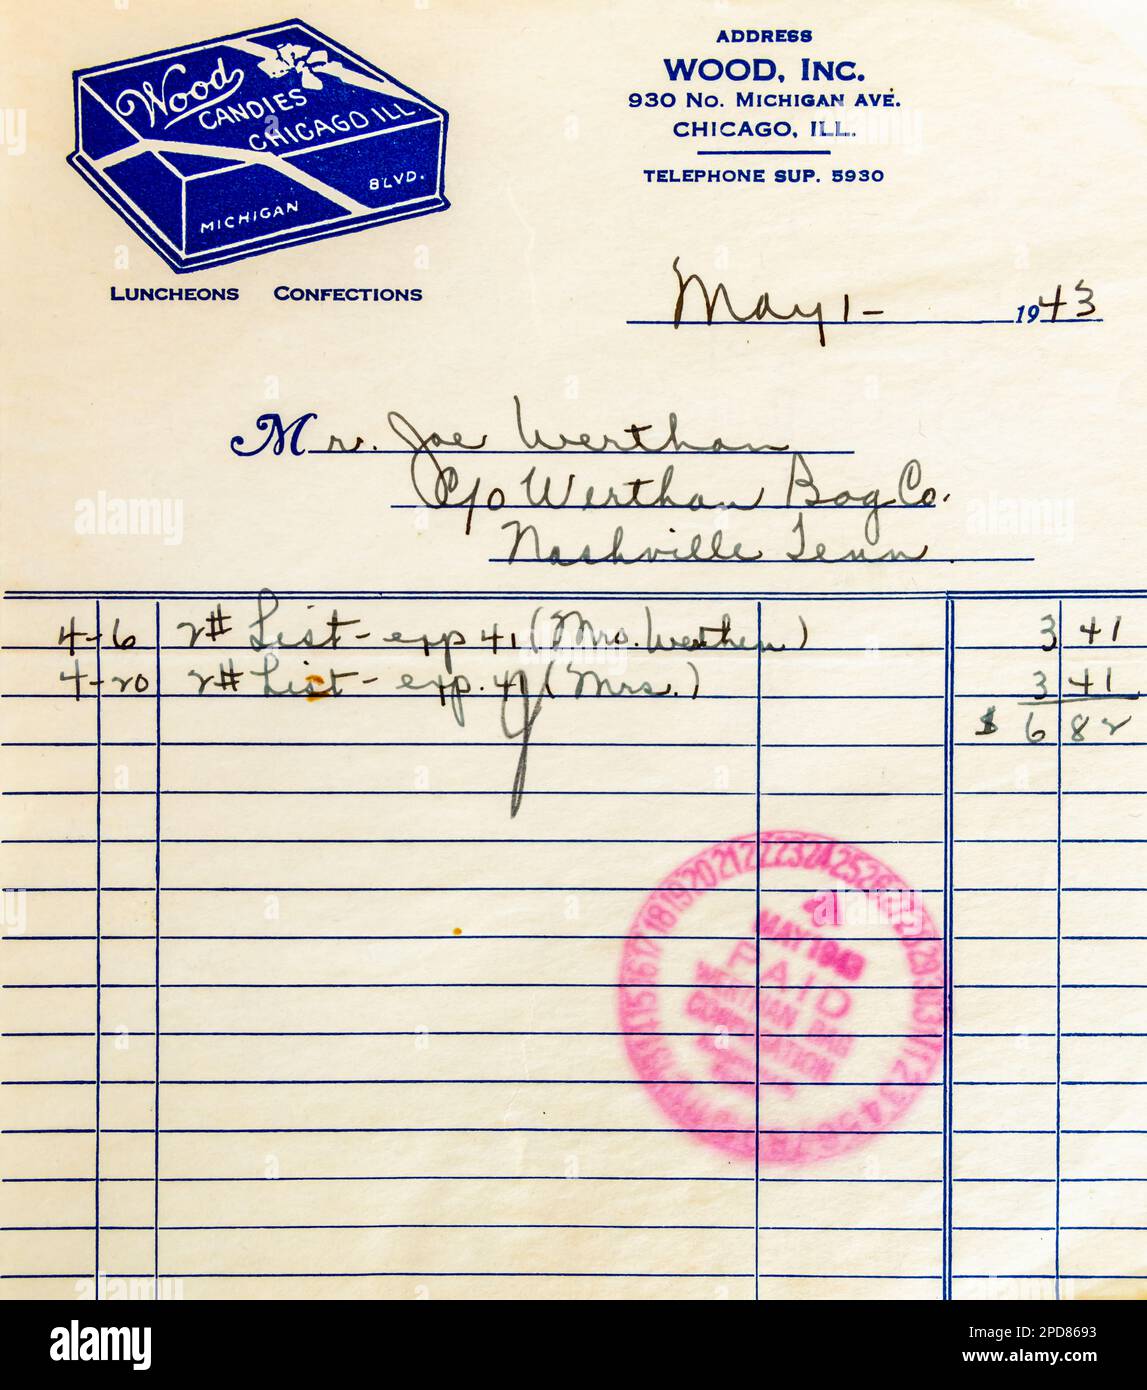 Wood
CANDIES
CHICAGO ILL
MICHIGAN BLVD.
LUNCHEONS CONFECTIONS
ADDRESS
WOOD, INC.
930 NO. MICHIGAN AVE.
CHICAGO, ILL.
TELEPHONE SUP. 5930
May 1 - 1943
Mr. Joe Werthan
c/o Werthan Bag Co.
Nashville Tenn.
4-6 2# List - exp 41 (Mrs. Werthan) 3 41
4-20 2# List - exp. 41 (Mrs.) 3 41
$ 6 82
15 16 17 18 19 20 21 22 23 24 25 26 27 28 29 30 31 1 2 3 4 5
MAY 1943
PAID
WERTHAN BAG
CORPORATION
alamy
Image ID: 2PD8693
www.alamy.com